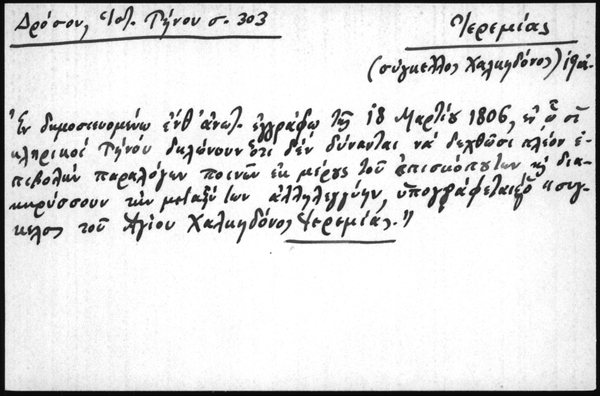 Δρόσου, Ἱστ. Τήνου σ. 303
Ἱερεμίας
(σύγκελλος Χαλκηδόνος)
Ἐν δημοσιευομένῳ ἔνθ' ἀνωτ. ἐγγράφῳ τῆς 18 Μαρτίου 1806, ἐν ᾧ οἱ
κληρικοί Τήνου δηλώνουν ὅτι δέν δύνανται νά δεχθῶσι πλέον ἐ-
πιβολήν παραλόγων ποινῶν ἐκ μέρους τοῦ ἐπισκόπου των καί δια-
κηρύσσουν τήν μεταξύ των ἀλληλεγγύην, ὑπογράφεται "συγ-
κελος τοῦ Ἁγίου Χαλκηδόνος Ἱερεμίας."